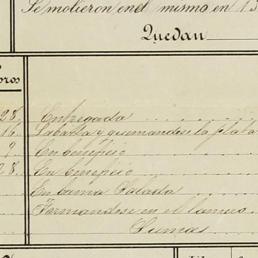 Se molieron en el mismo en 15
Quedan
28, Entregada
16, Labada y quemandose la plata
9 En beneficio
28, En beneficio
En cama Salada
Formandose en el lamero
Sumas